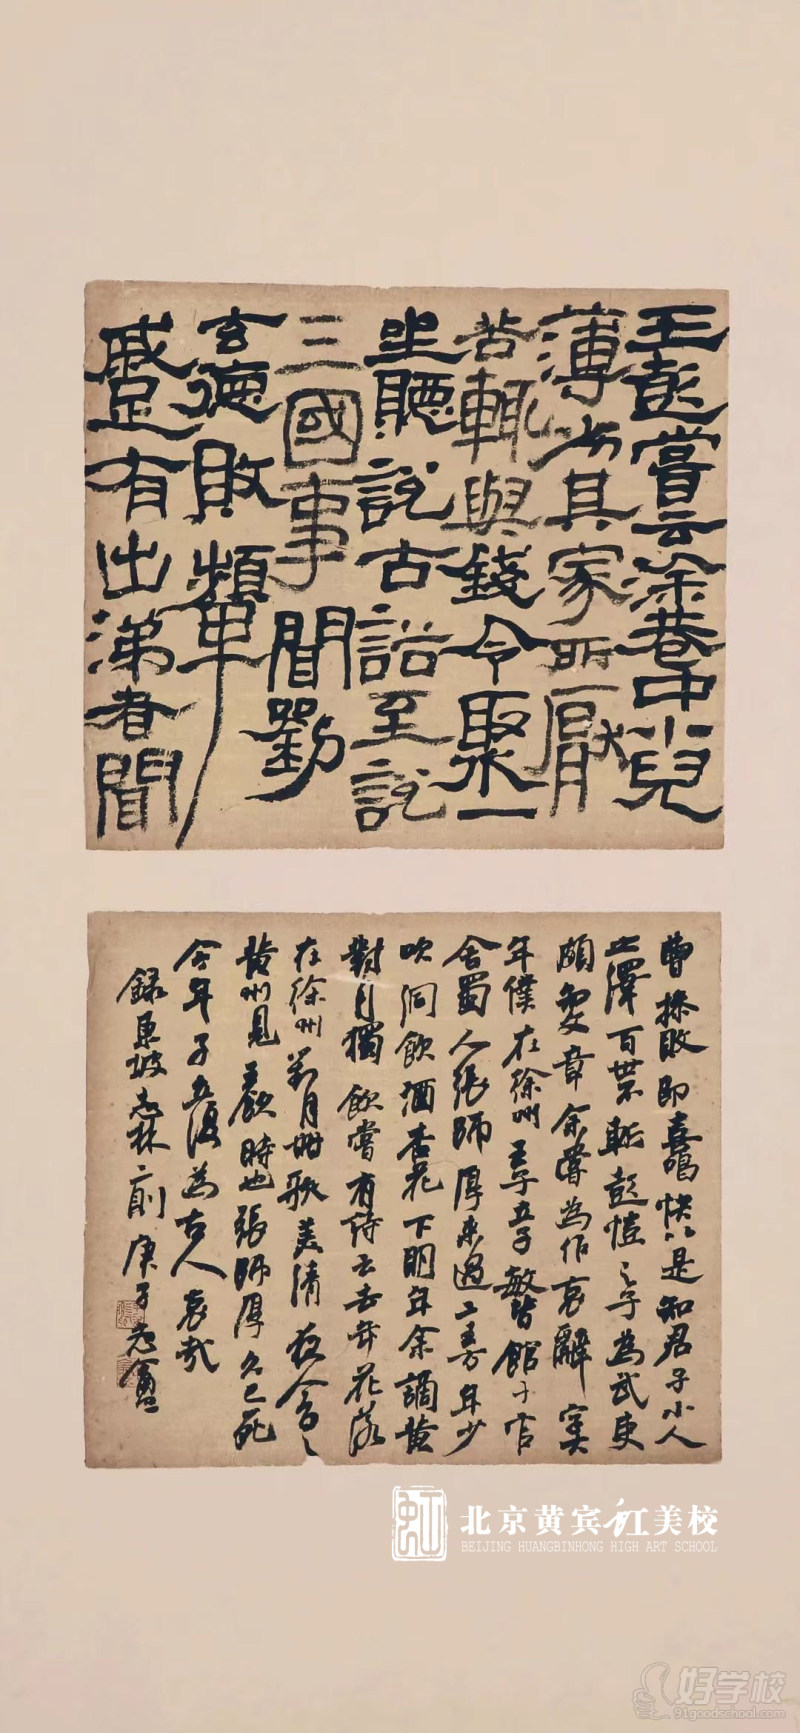 王彭嘗云涂巷中小兒
薄劣其家所厭
苦輒與錢令聚
坐聽說古話至說
三國事聞劉
玄德敗顰
蹙有出涕者聞
曹操敗即喜唱快以是知君子小人
之澤百世不斬彭愷之子為武吏
頗知文章余嘗為作哀辭
年僕在徐州王子立子敏皆館于官
舍蜀人張師厚來過二王方年少
吹洞飲酒杏花下明年余謫黃
對月獨飲嘗有詩云去年花落
在徐州對月酣歌美清夜今日
黃州見王飲時也張師厚久已死
今年子立復為古人哀哉
錄東坡志林二則庚子
北京黄宾虹美校
BEIJING HUANGBINHONG HIGH ART SCHOOL
好学校
91goodschool.com